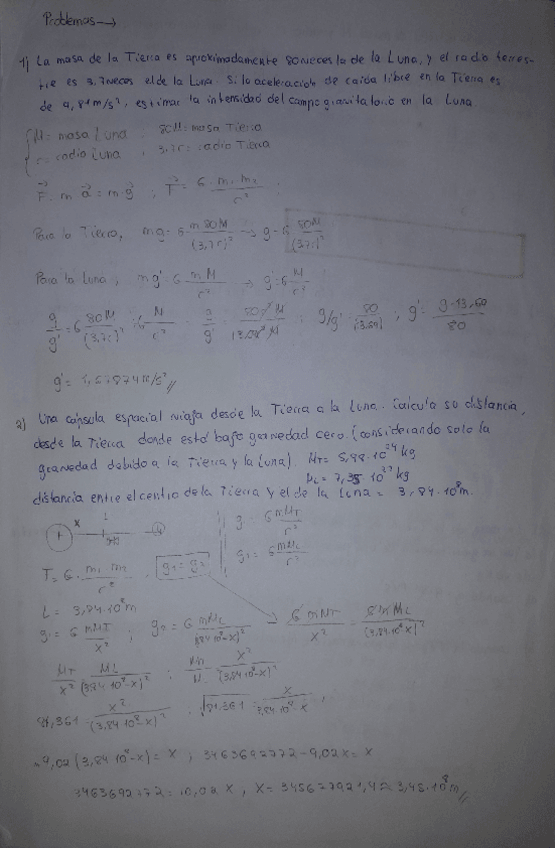 Problemas →
1) La masa de la Tierra es aproximadamente 80 veces la de la Luna, y el radio terres-
tre es 3,7 veces el de la Luna. Si la aceleración de caída libre en la Tierra es
de 9,81 m/s², estimar la intensidad del campo gravitatorio en la Luna
M = masa Luna ; 80M = masa Tierra
r = radio Luna ; 3,7r = radio Tierra
F = m a = m·g ; F = G · m₁ m₂ / r²
Para la Tierra, mg = G m80M / (3,7r)² → g = G 80M / (3,7r)²
Para la Luna, mg' = G mM / r² → g' = G M / r²
g/g' = G 80M / (3,7r)² : G M / r² g/g' 80 r² M ; g/g' 80 ; g' = g·13,69 / 80
g' = 1,67874 m/s² //
2) Una cápsula espacial viaja desde la Tierra a la Luna. Calcula su distancia,
desde la Tierra donde está bajo gravedad cero. (considerando solo la
gravedad debido a la Tierra y la Luna) MT = 5,98·10²⁴ kg
ML = 7,35 10²² kg
distancia entre el centro de la Tierra y el de la Luna = 3,84·10⁸ m.
x L
g = G mMT / r²
g₂ = G mML / r²
F = G · m₁ m₂ / r² , g₁ = g₂
L = 3,84·10⁸ m
g₁ = G mMT / x² ; g₂ = G mML / (3,84·10⁸-x)² → G mMT / x² = G mML / (3,84·10⁸-x)²
MT / x² ML / (3,84·10⁸-x)² ; x² / (3,84·10⁸-x)²
81,361 = x² / (3,84·10⁸-x)² √81,361 = x / 3,84·10⁸-x ,
9,02 (3,84·10⁸-x) = x ; 3463692772 - 9,02x = x
3463692772 = 10,02 x , x = 3,45·10⁸ m //